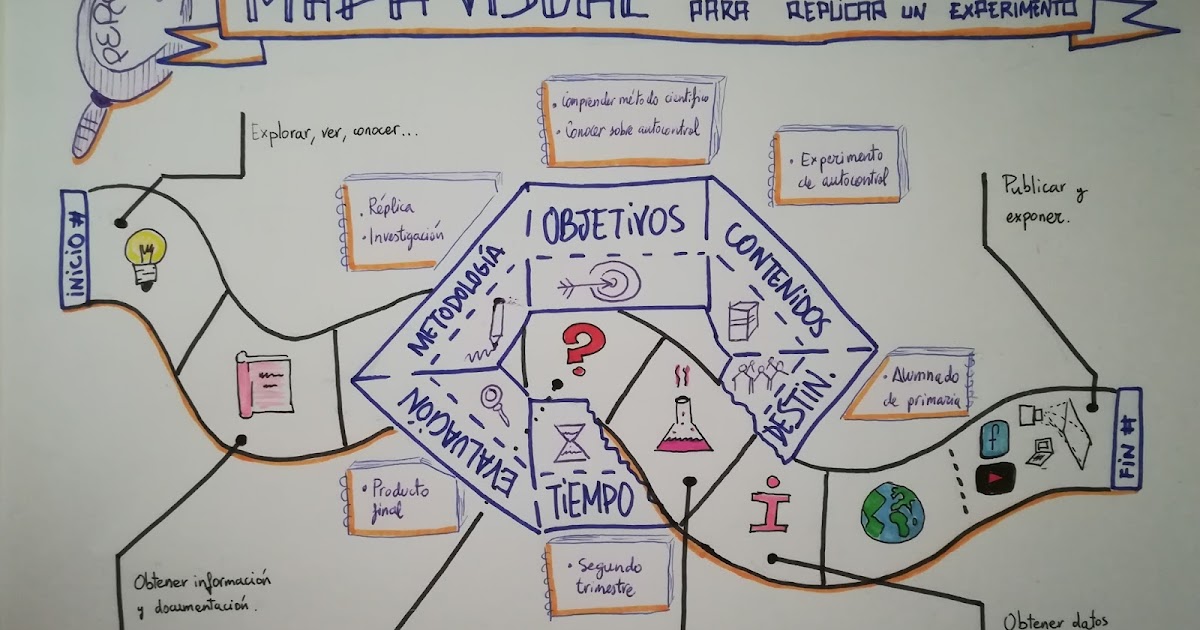 MAPA VISUAL PARA REPLICAR UN EXPERIMENTO
Explorar, ver, conocer...
• Comprender método científico
• Conocer sobre autocontrol
• Experimento
de autocontrol
Publicar y
exponer.
• Réplica
• Investigación
INICIO #
OBJETIVOS
METODOLOGÍA
CONTENIDOS
?
• Alumnado
de primaria
DESTIN.
EVALUACIÓN
TIEMPO
i
f
FIN #
• Producto
final
• Segundo
trimestre
Obtener información
y documentación.
Obtener datos